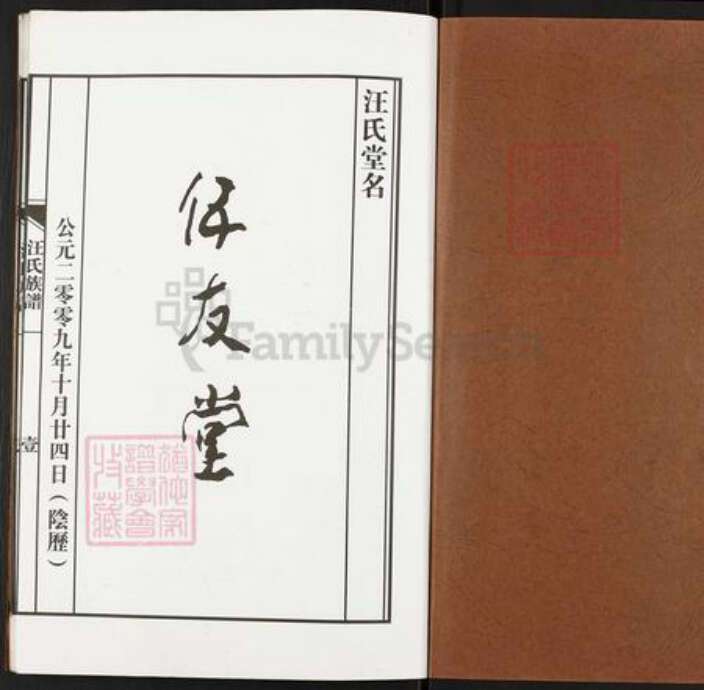 汪氏堂名
友堂
公元二零零九年十月廿四日(陰歷)
汪氏族譜
壹
猶他家
譜學會
特藏
FamilySearch